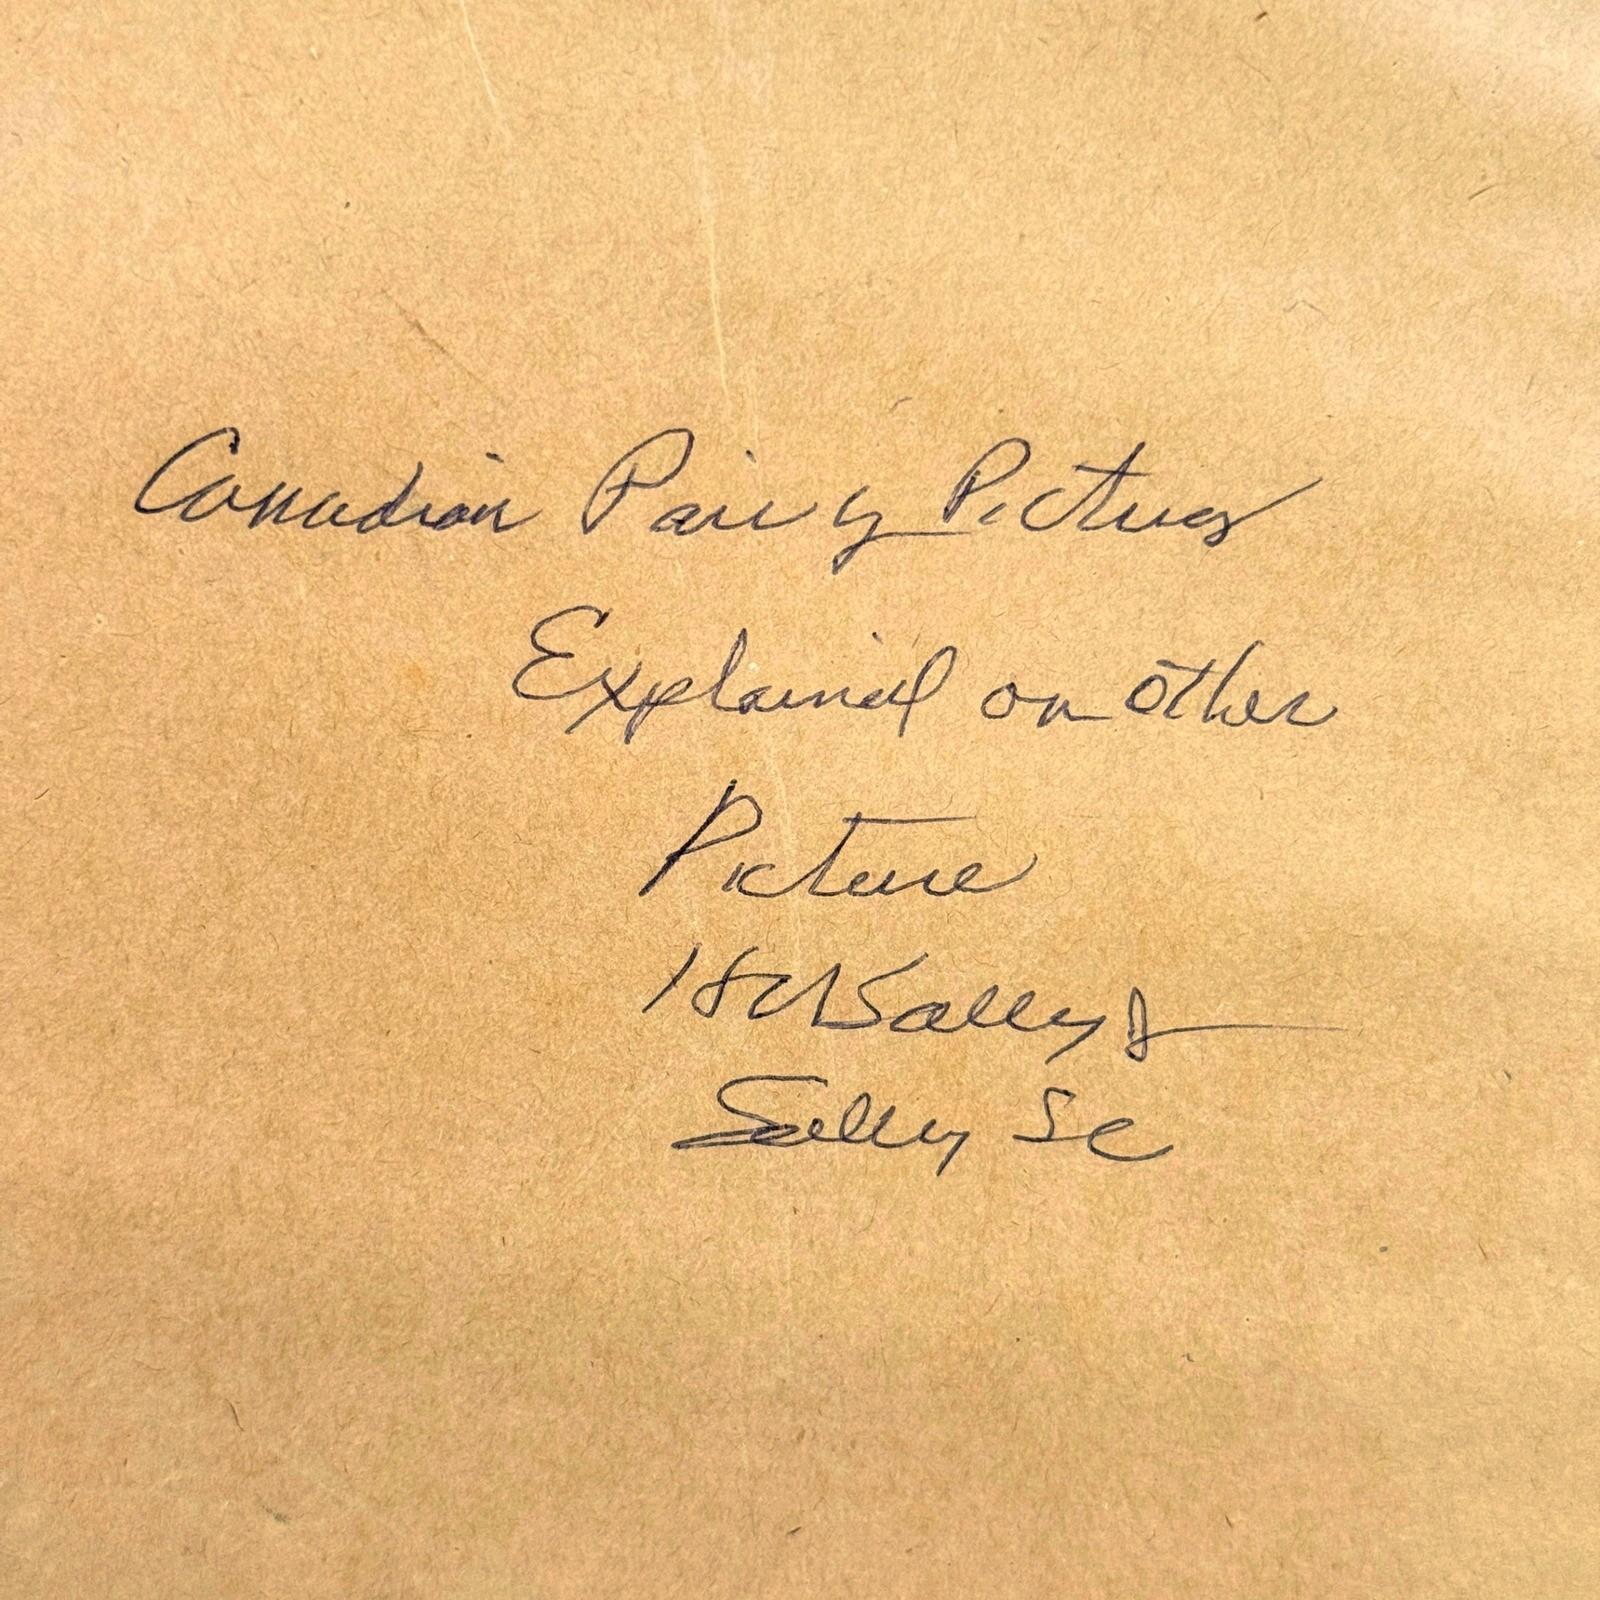 Canadian Pair of Pictures
Explained on other
Picture
H W Salley Jr
Salley SC